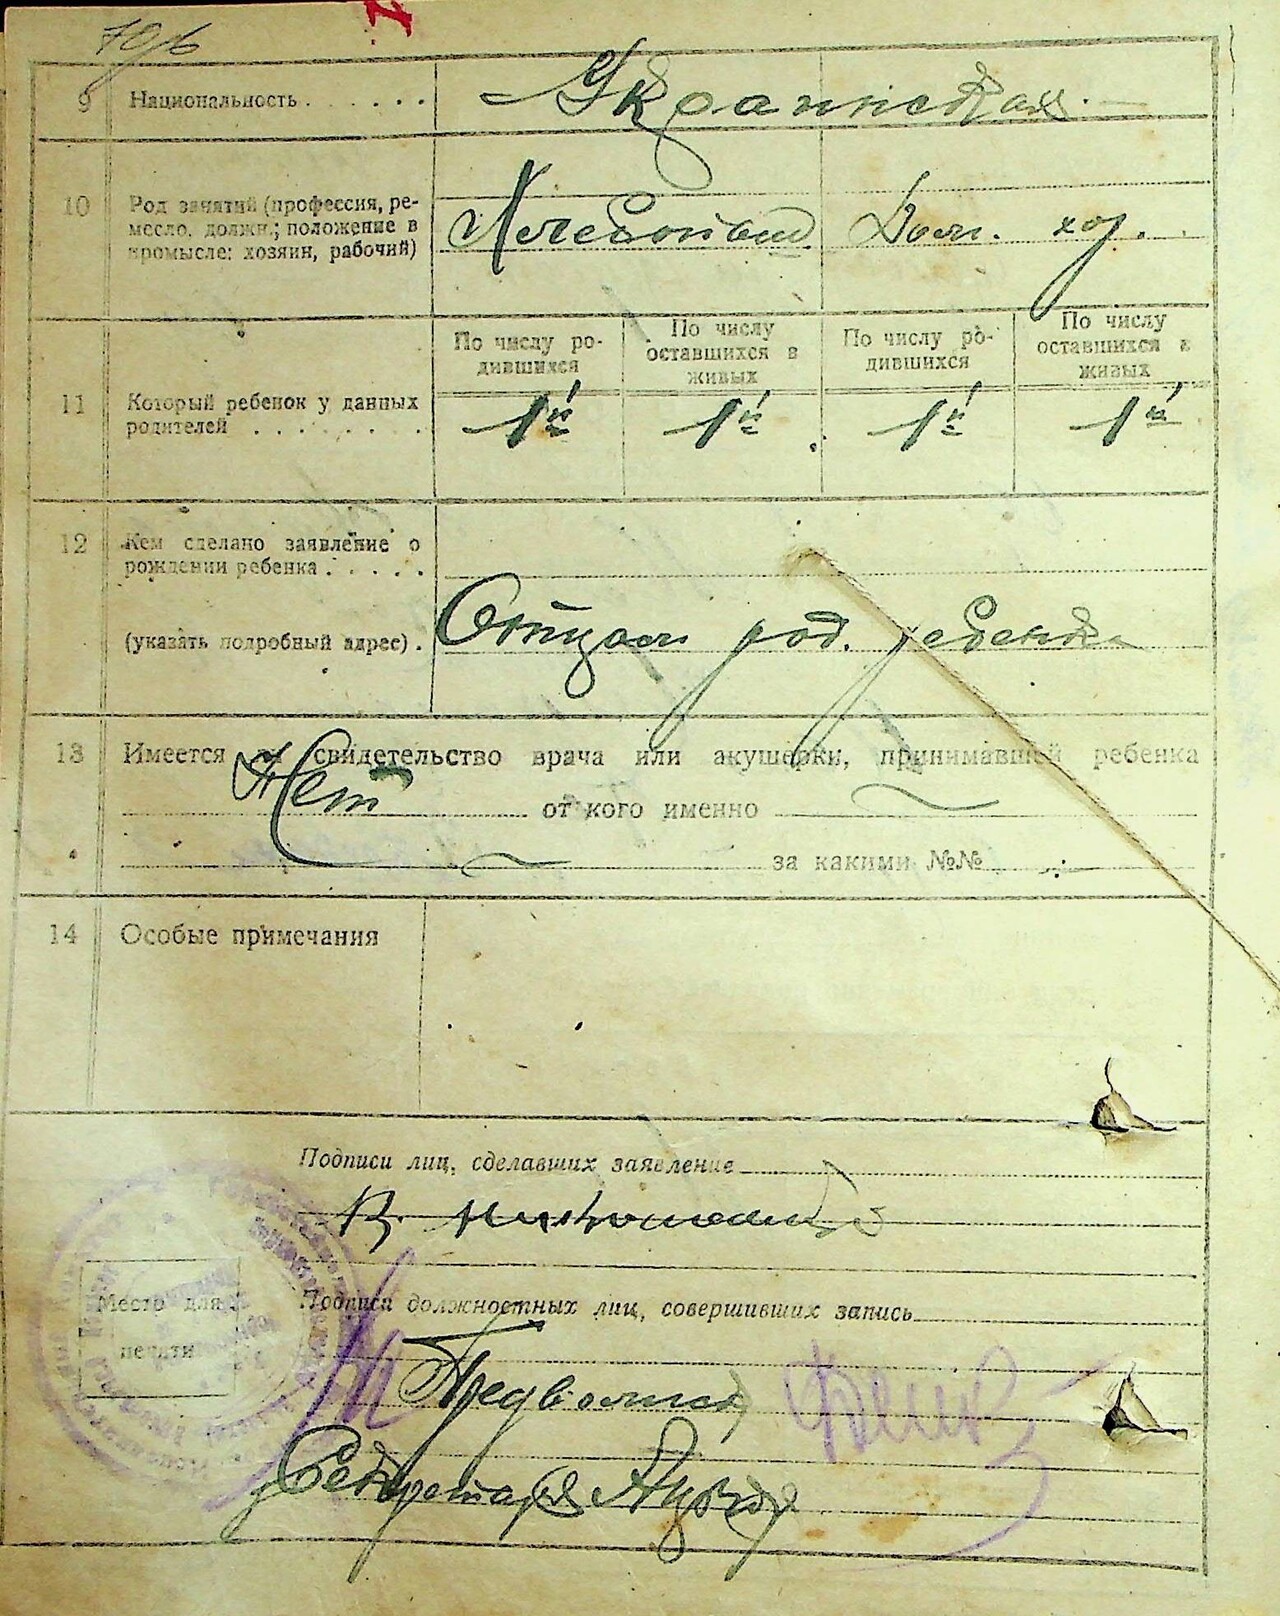 9 Национальность . . . . . . Украинская. —
10 Род занятий (профессия, ре-
месло, должн.; положение в
промысле: хозяин, рабочий)
Хлебопашц Дом. хоз.
По числу ро-
дившихся
По числу
оставшихся в
живых
По числу ро-
дившихся
По числу
оставшихся в
живых
11 Который ребенок у данных
родителей . . . . . . . .
1й 1й 1й 1й
12 Кем сделано заявление о
рождении ребенка . . . . .
(указать подробный адрес) . Отцом род. ребенка
13 Имеется ли свидетельство врача или акушерки, принимавшей ребенка
Нет от кого именно
за какими №№
14 Особые примечания
Подписи лиц, сделавших заявление
В.
Подписи должностных лиц, совершивших запись
Место для
печати
Предволиск
Секретарь